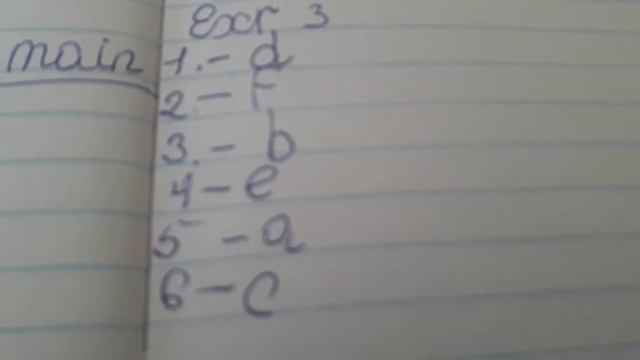 Exr 3
main 1.- d
2 - F
3. - b
4 - e
5 - a
6 - c